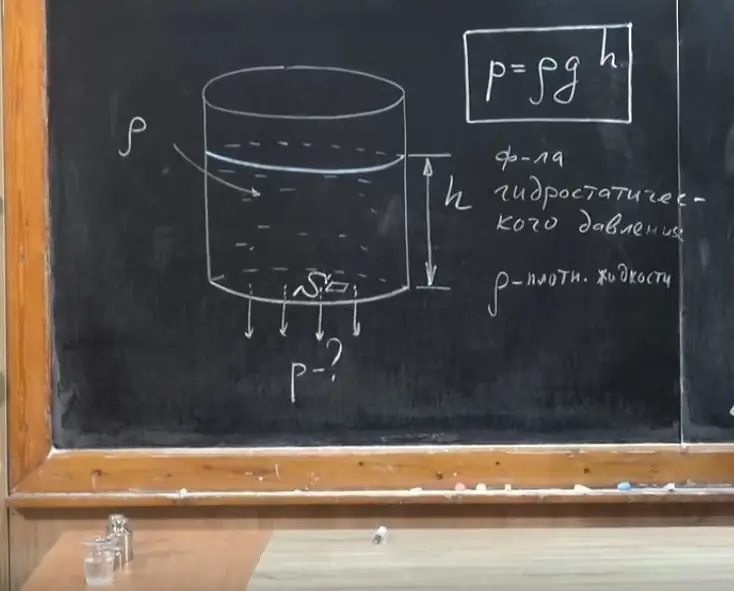 p = ρg h
ρ
ф-ла
гидростатичес-
кого давления
h
ρ - плотн. жидкости
S
p - ?